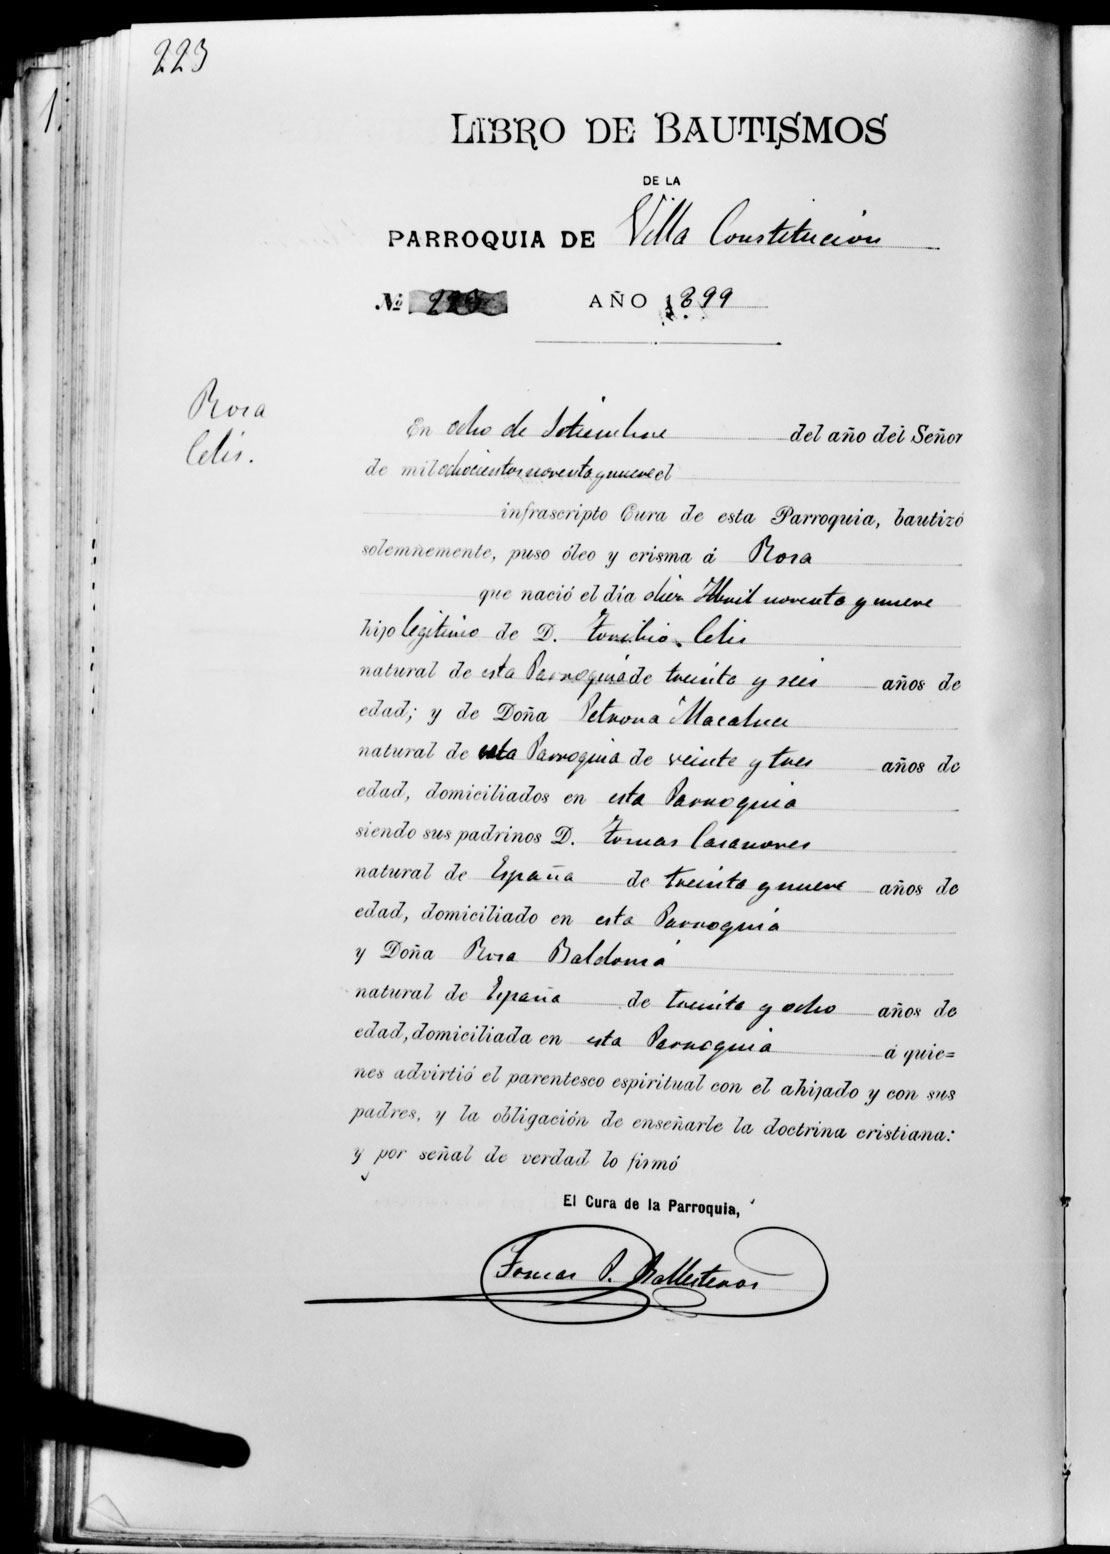 223
1.
LIBRO DE BAUTISMOS
DE LA
PARROQUIA DE Villa Constitución
Nº 223 AÑO 1899
Rosa
Celis.
En ocho de Setiembre del año del Señor
de mil ochocientos noventa y nueve el
infrascripto Cura de esta Parroquia, bautizó
solemnemente, puso óleo y crisma á Rosa
que nació el día diez Abril noventa y nueve
hijo legitimo de D. Toribio Celis
natural de esta Parroquia de treinta y seis años de
edad; y de Doña Petrona
natural de esta Parroquia de veinte y tres años de
edad, domiciliados en esta Parroquia
siendo sus padrinos D. Tomas Casanoves
natural de España de treinta y nueve años de
edad, domiciliado en esta Parroquia
y Doña Rosa Baldomá
natural de España de treinta y ocho años de
edad, domiciliada en esta Parroquia á quie=
nes advirtió el parentesco espiritual con el ahijado y con sus
padres, y la obligación de enseñarle la doctrina cristiana:
y por señal de verdad lo firmó
El Cura de la Parroquia,
Tomas P. Ballesteros